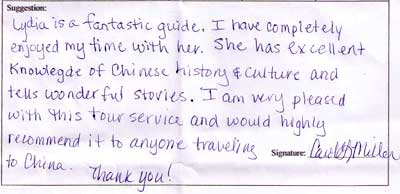 Suggestion:
Lydia is a fantastic guide. I have completely
enjoyed my time with her. She has excellent
Knowlegde of Chinese history & culture and
tells wonderful stories. I am very pleased
with this tour service and would highly
recommend it to anyone traveling
to China. Thank you!
Signature: Miller